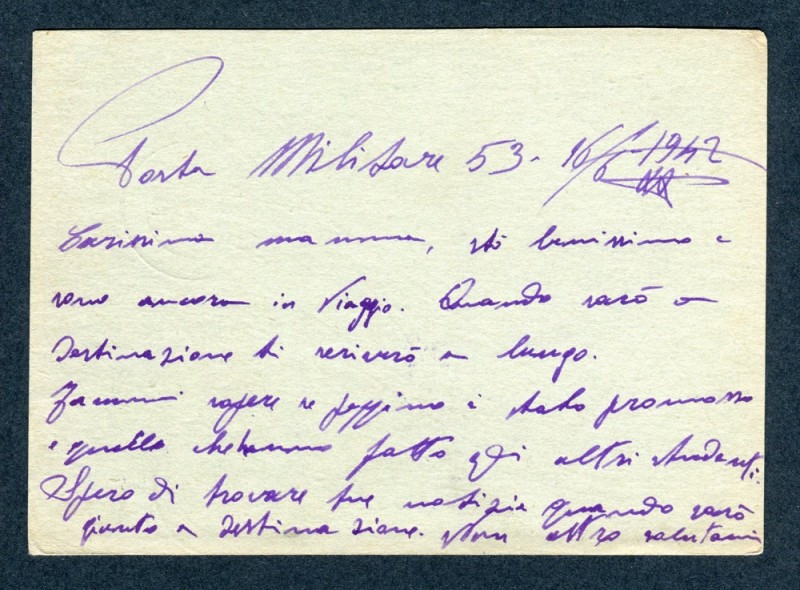 Posta Militare 53 - 16/6 1942
Carissima mamma, stò benissimo e
sono ancora in Viaggio. Quando sarò a
Destinazione ti scriverò a lungo.
Fammi sapere se Peppino è stato promosso
e quello che hanno fatto gli altri studenti.
Spero di trovare tue notizie quando sarò
giunto a Destinazione. Non altro salutami